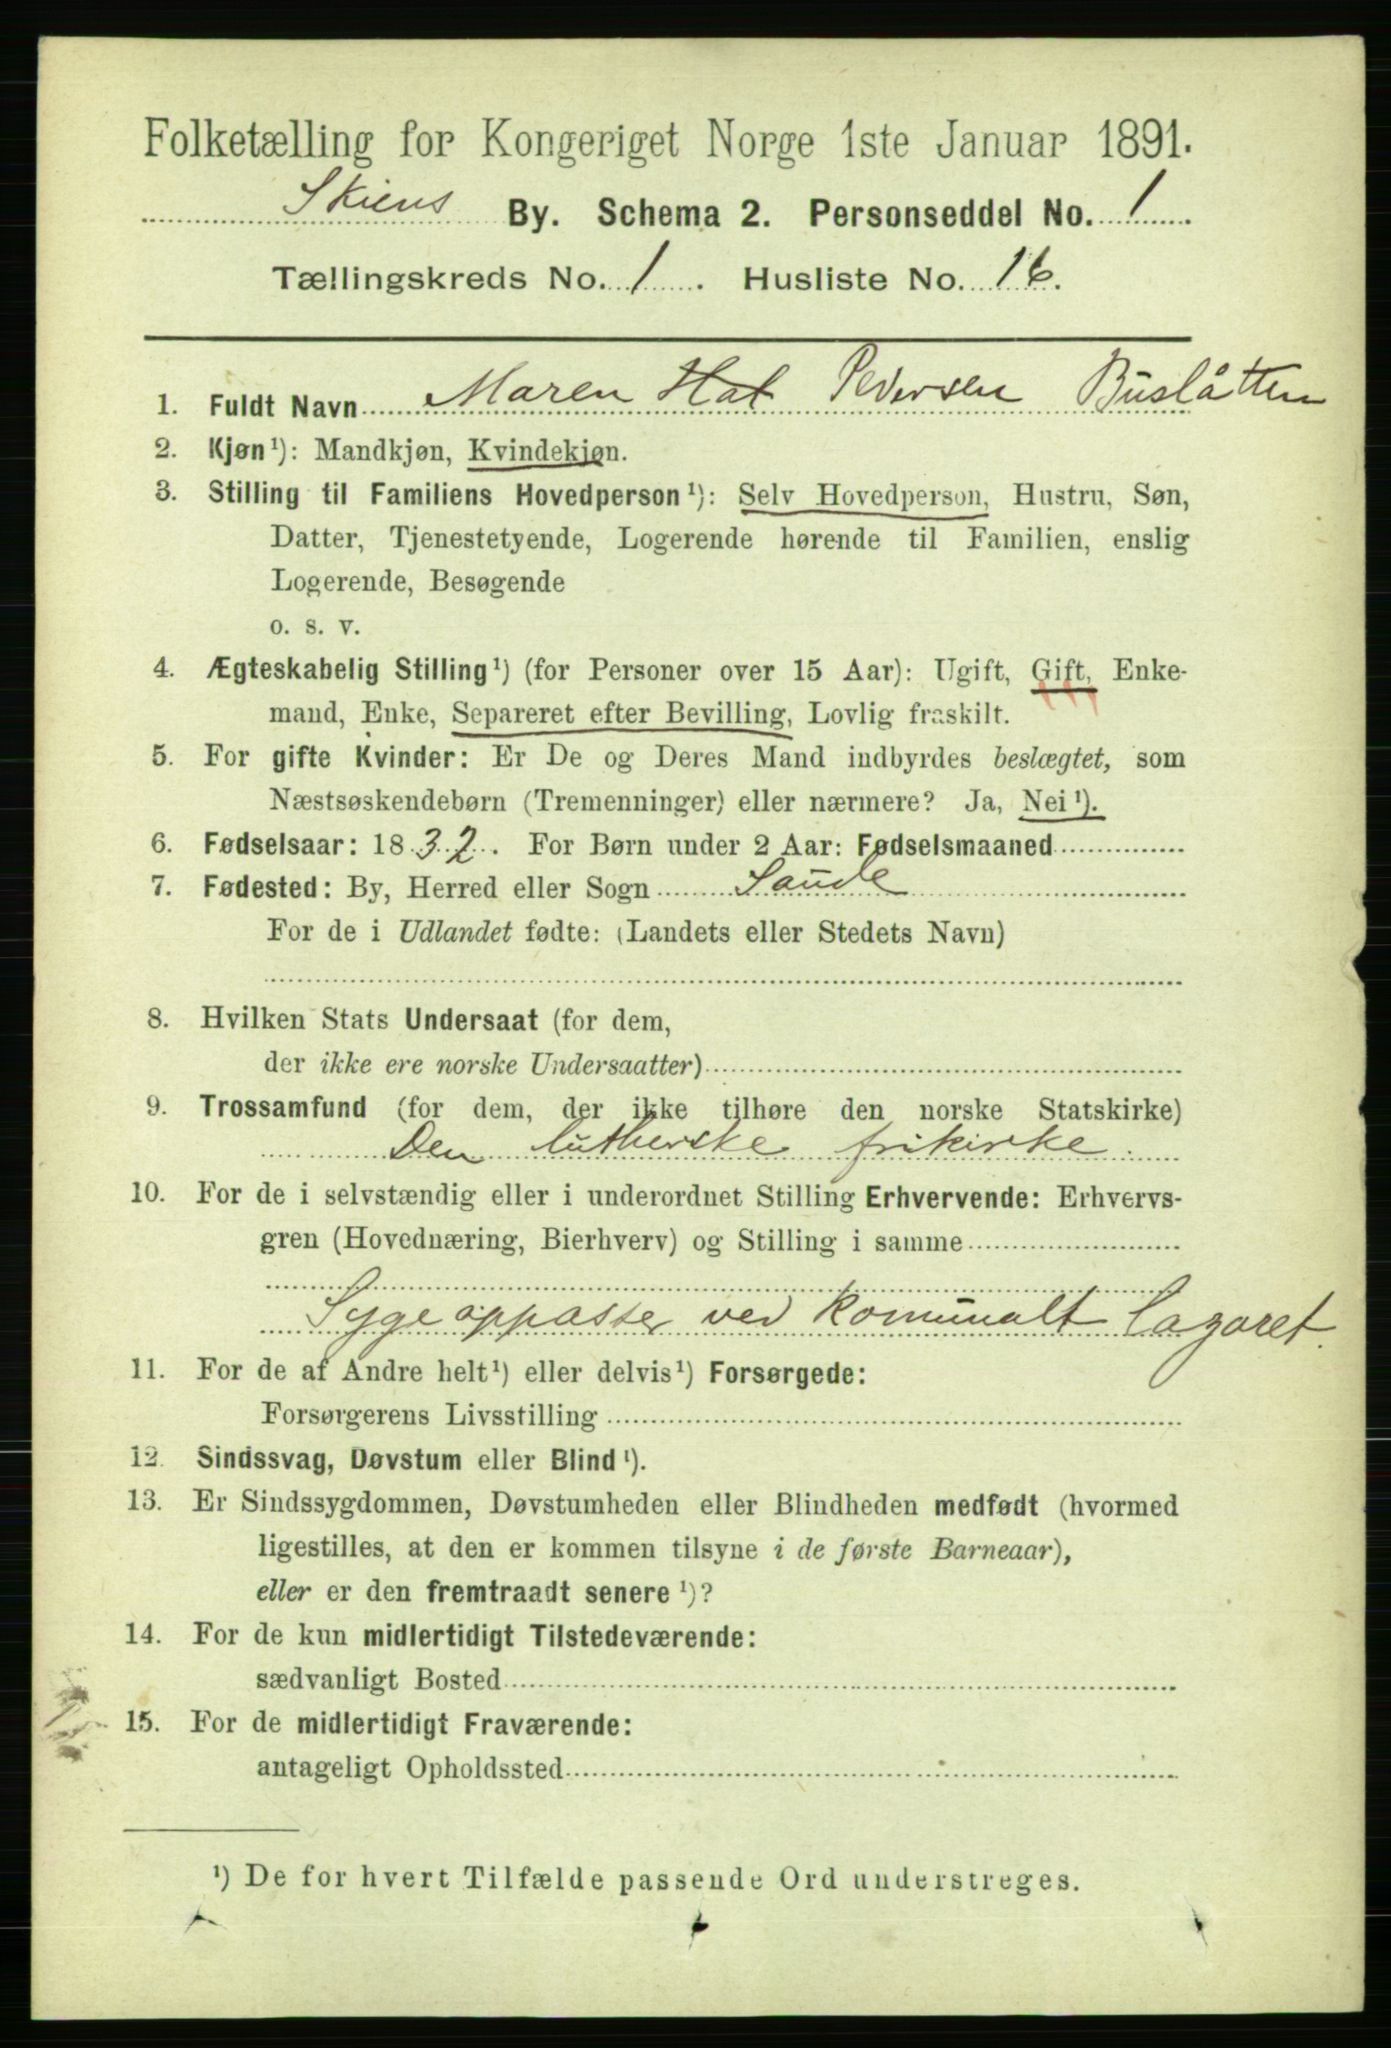 Folketælling for Kongeriget Norge 1ste Januar 1891.
Skiens By. Schema 2. Personseddel No. 1
Tællingskreds No. 1. Husliste No. 16.
1. Fuldt Navn Maren Hat Pedersen Buslåtten
2. Kjøn¹): Mandkjøn, Kvindekjøn.
3. Stilling til Familiens Hovedperson¹): Selv Hovedperson, Hustru, Søn,
Datter, Tjenestetyende, Logerende hørende til Familien, enslig
Logerende, Besøgende
o. s. v.
4. Ægteskabelig Stilling¹) (for Personer over 15 Aar): Ugift, Gift, Enke-
mand, Enke, Separeret efter Bevilling, Lovlig fraskilt.
5. For gifte Kvinder: Er De og Deres Mand indbyrdes beslægtet, som
Næstsøskendebørn (Tremenninger) eller nærmere? Ja, Nei¹).
6. Fødselsaar: 1832. For Børn under 2 Aar: Fødselsmaaned
7. Fødested: By, Herred eller Sogn Saude
For de i Udlandet fødte: (Landets eller Stedets Navn)
8. Hvilken Stats Undersaat (for dem,
der ikke ere norske Undersaatter)
9. Trossamfund (for dem, der ikke tilhøre den norske Statskirke)
Den lutherske frikirke.
10. For de i selvstændig eller i underordnet Stilling Erhvervende: Erhvervs-
gren (Hovednæring, Bierhverv) og Stilling i samme
Sygeoppasser ved komunalt Lazaret.
11. For de af Andre helt¹) eller delvis¹) Forsørgede:
Forsørgerens Livsstilling
12. Sindssvag, Døvstum eller Blind¹).
13. Er Sindssygdommen, Døvstumheden eller Blindheden medfødt (hvormed
ligestilles, at den er kommen tilsyne i de første Barneaar),
eller er den fremtraadt senere¹)?
14. For de kun midlertidigt Tilstedeværende:
sædvanligt Bosted
15. For de midlertidigt Fraværende:
antageligt Opholdssted
¹) De for hvert Tilfælde passende Ord understreges.